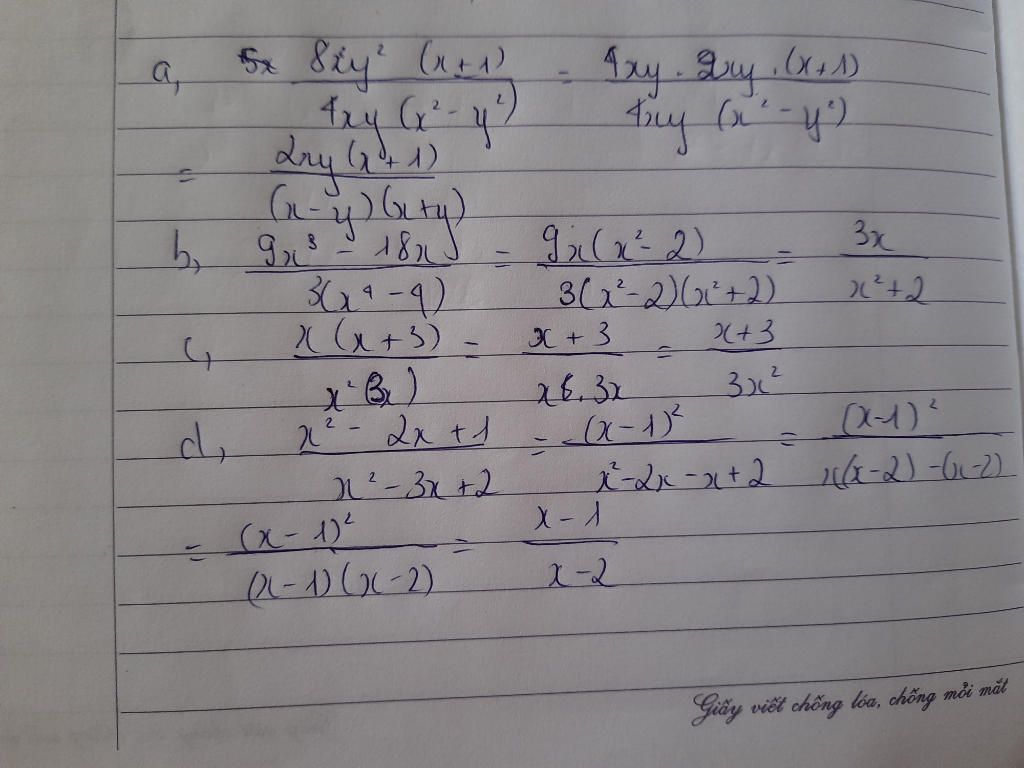 a, 8x²y² (x+1) / 4xy (x² - y²) = 4xy . 2xy . (x+1) / 4xy (x² - y²)
= 2xy (x+1) / (x-y)(x+y)
b, 9x³ - 18x / 3(x⁴ - 4) = 9x(x² - 2) / 3(x² - 2)(x² + 2) = 3x / x² + 2
c, x(x+3) / x²(3x) = x + 3 / x . 3x = x+3 / 3x²
d, x² - 2x + 1 / x² - 3x + 2 = (x-1)² / x² - 2x - x + 2 = (x-1)² / x(x-2) - (x-2)
= (x-1)² / (x-1)(x-2) = x-1 / x-2
Giấy viết chống lóa, chống mỏi mắt